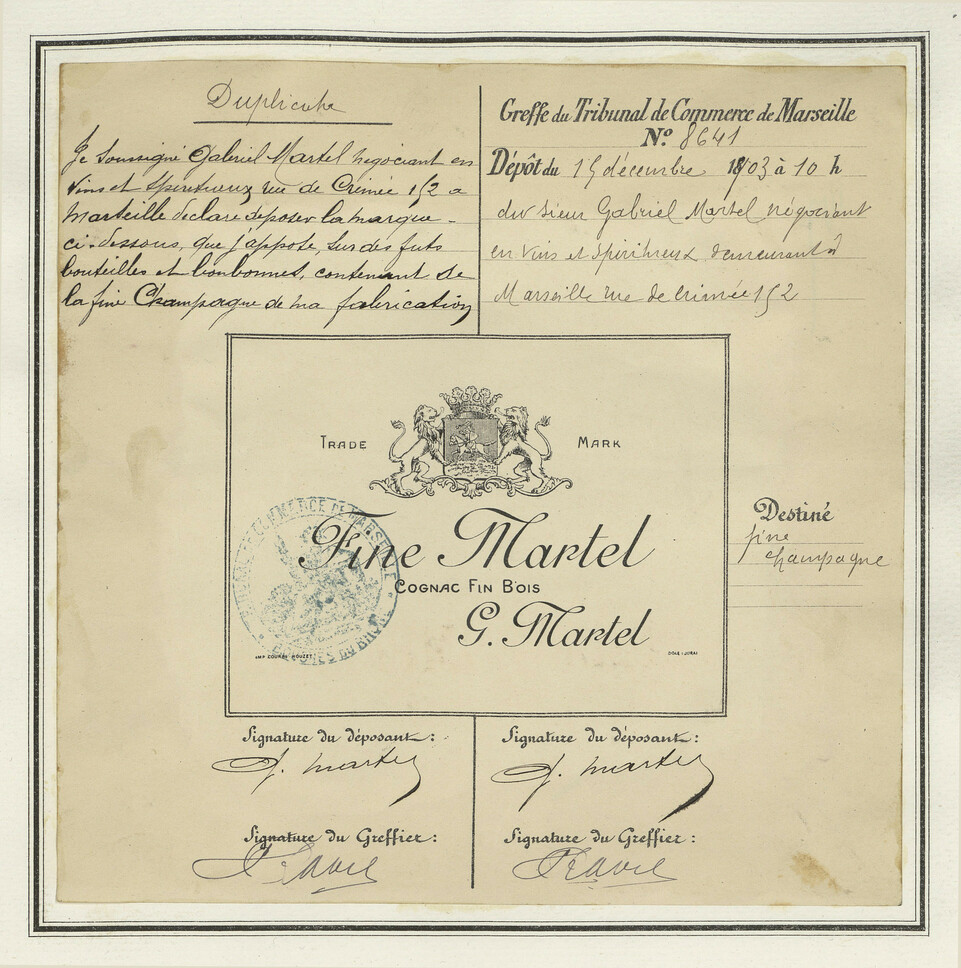 Duplicata
Je soussigné Gabriel Martel négociant en
vins et spiritueux rue de Crimée 152 a
Marseille declare deposer la marque -
ci-dessous, que j'appose, sur des futs
bouteilles et bonbonnes, contenant de
la fine Champagne de ma fabrication
Greffe du Tribunal de Commerce de Marseille
N.º 8641
Dépôt du 15 décembre 1903 à 10 h
du sieur Gabriel Martel négociant
en vins et spiritueux demeurant à
Marseille rue de Crimée 152
TRADE MARK
Fine Martel
COGNAC FIN BOIS
G. Martel
DÔLE (JURA)
TRIBUNAL DE COMMERCE DE MARSEILLE
BOUCHES DU RHÔNE
Destiné
fine
champagne
Signature du déposant:
G. Martel
Signature du déposant:
G. Martel
Signature du Greffier:
Signature du Greffier: